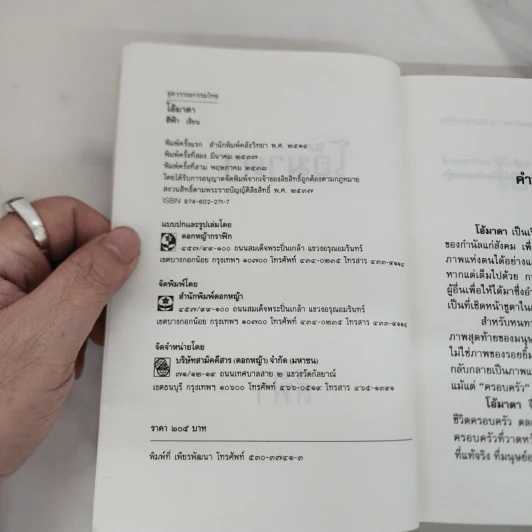 ชุดวรรณกรรมไทย
โอ้มาดา
สีฟ้า เขียน
พิมพ์ครั้งแรก สำนักพิมพ์คลังวิทยา พ.ศ. ๒๕๑๔
พิมพ์ครั้งที่สอง มีนาคม ๒๕๓๗
พิมพ์ครั้งที่สาม พฤษภาคม ๒๕๓๘
โดยได้รับการอนุญาตจัดพิมพ์จากเจ้าของลิขสิทธิ์ถูกต้องตามกฎหมาย
สงวนสิทธิ์ตามพระราชบัญญัติลิขสิทธิ์ พ.ศ. ๒๕๓๗
ISBN 974-602-271-7
แบบปกและรูปเล่มโดย
ดอกหญ้ากราฟิก
๔๕๗/๙๙-๑๐๐ ถนนสมเด็จพระปิ่นเกล้า แขวงอรุณอมรินทร์
เขตบางกอกน้อย กรุงเทพฯ ๑๐๗๐๐ โทรศัพท์ ๔๓๔-๐๒๓๕ โทรสาร ๔๓๓-๙๑๑๔
จัดพิมพ์โดย
สำนักพิมพ์ดอกหญ้า
๔๕๗/๙๙-๑๐๐ ถนนสมเด็จพระปิ่นเกล้า แขวงอรุณอมรินทร์
เขตบางกอกน้อย กรุงเทพฯ ๑๐๗๐๐ โทรศัพท์ ๔๓๔-๐๒๓๕ โทรสาร ๔๓๓-๙๑๑๔
จัดจำหน่ายโดย
บริษัทสามัคคีสาร (ดอกหญ้า) จำกัด (มหาชน)
๓๑/๑๒-๑๙ ถนนเทศบาลสาย ๒ แขวงวัดกัลยาณ์
เขตธนบุรี กรุงเทพฯ ๑๐๖๐๐ โทรศัพท์ ๔๖๖-๐๕๑๙ โทรสาร ๔๖๕-๑๓๙๑
ราคา ๒๐๕ บาท
พิมพ์ที่ เพียรพัฒนา โทรศัพท์ ๕๓๐-๓๗๔๑-๓
คำ
โอ้มาดา เป็นเรื่
ของกำนัลแก่สังคม เพื่
ภาพแห่งตนได้อย่าง
หากแต่เต็มไปด้วย
ผู้อื่นเพื่อให้ได้มาซึ่ง
เป็นที่เชิดหน้าชูตาใน
สำหรับหนทา
ภาพสุดท้ายของมนุษ
ไม่ใช่ภาพของรอยยิ้ม
กลับกลายเป็นภาพแ
แม้แต่ "ครอบครัว"
โอ้มาดา จึ
ชีวิตครอบครัว ตลอ
ครอบครัวที่วาดหวั
ที่แท้จริง ที่มนุษย์อ